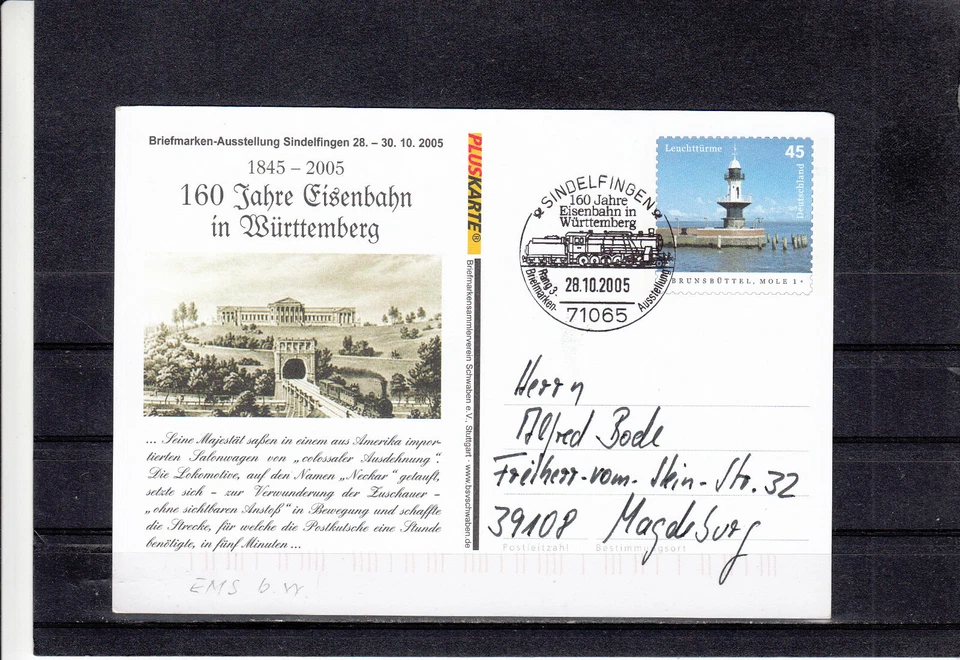 Briefmarken-Ausstellung Sindelfingen 28. – 30. 10. 2005
1845 – 2005
160 Jahre Eisenbahn
in Württemberg
... Seine Majestät saßen in einem aus Amerika impor-
tierten Salonwagen von „colossaler Ausdehnung“.
Die Lokomotive, auf den Namen „Neckar“ getauft,
setzte sich – zur Verwunderung der Zuschauer –
„ohne sichtbaren Anstoß“ in Bewegung und schaffte
die Strecke, für welche die Postkutsche eine Stunde
benötigte, in fünf Minuten ...
EMS b. W.
PLUSKARTE®
Briefmarkensammlerverein Schwaben e.V., Stuttgart · www.bsvschwaben.de
SINDELFINGEN
160 Jahre
Eisenbahn in
Württemberg
Rang 3-
Briefmarken-
Ausstellung
28.10.2005
71065
Leuchttürme
45
Deutschland
BRUNSBÜTTEL, MOLE 1
Herrn
Alfred Bode
Freiherr-vom-Stein-Str. 32
39108 Magdeburg
Postleitzahl
Bestimmungsort